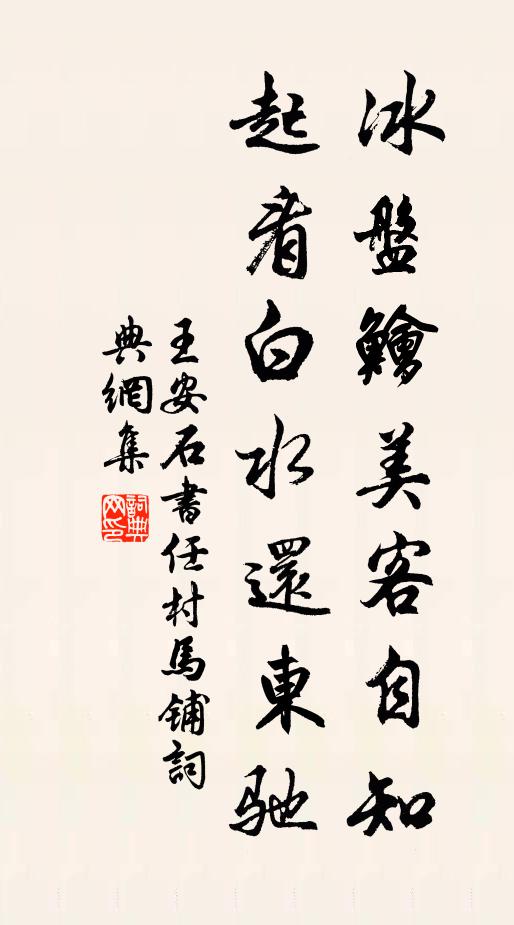 冰盤鱠美客自知
起看白水還東馳
王安石書任村馬鋪詞
典網集
詞典網印